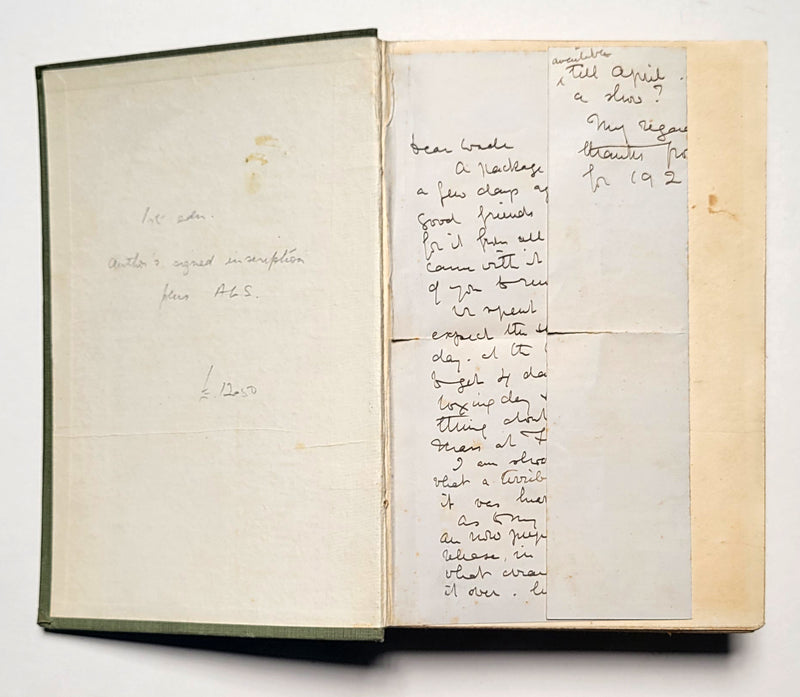 1st edn.
author's signed inscription
plus ALS.
£12.50
Dear Wade
A package
a few days ag
good friends
for it from all
came with it
of you
we spent
expect the
day. at the
to get 4 da
boxing day
thing about
Mass at
I am
what a terrib
it was
as to my
an now prep
release, in
what
it over.
available
till April.
a show?
My regar
thanks fo
for 192